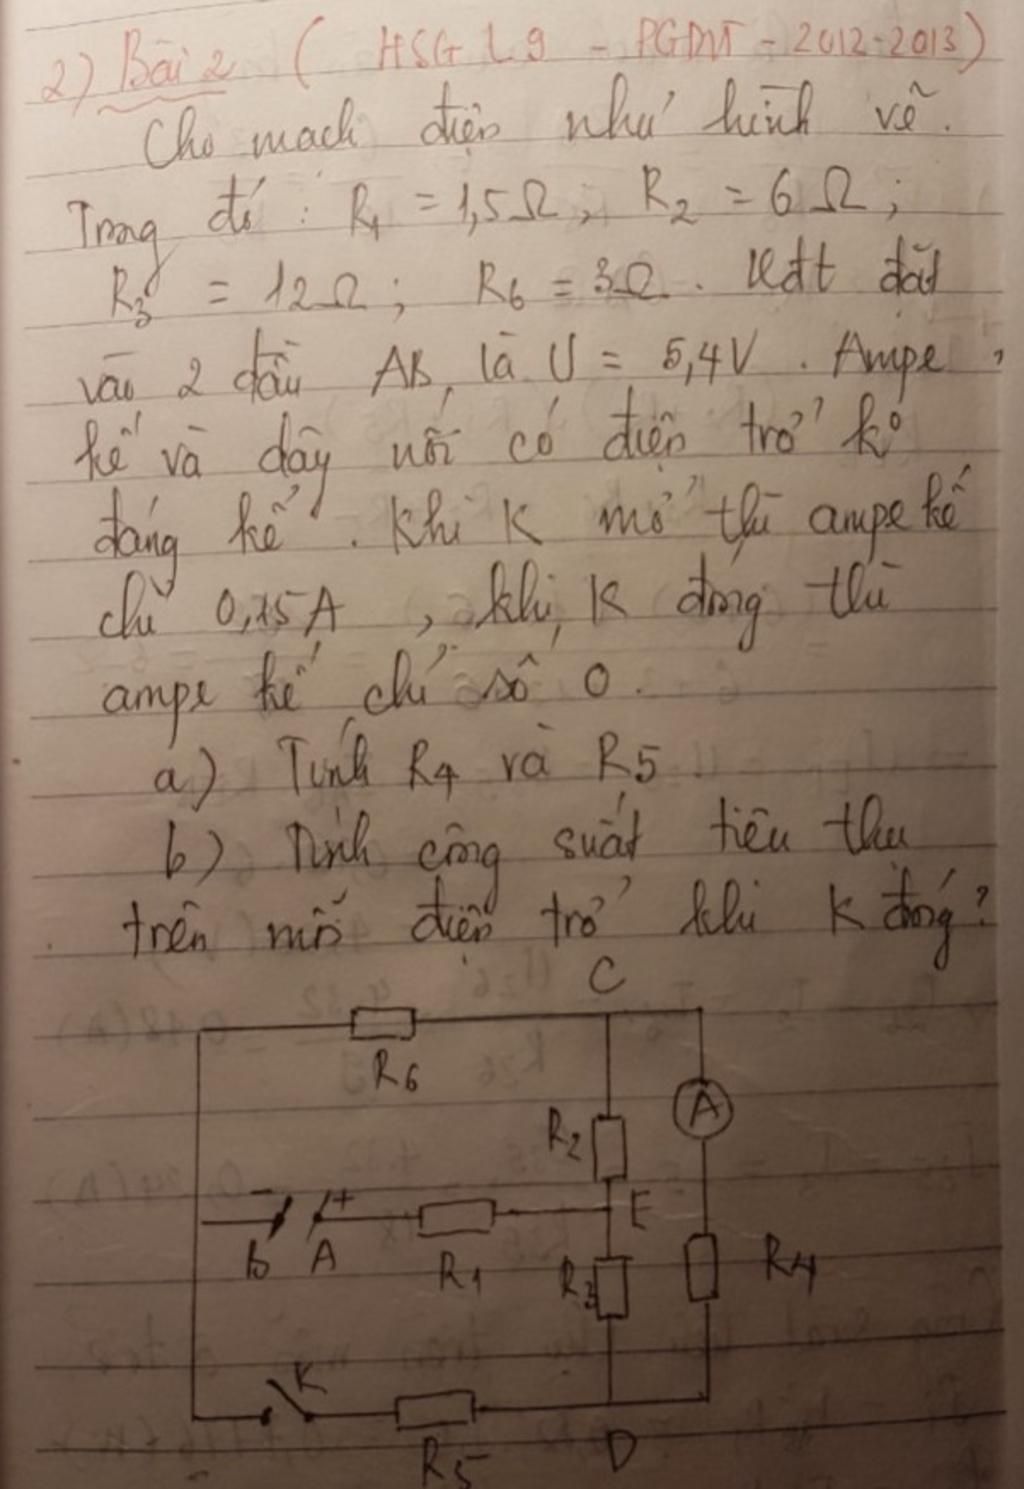 2) Bài 2 ( HSG L9 - PGDĐT - 2012-2013)
Cho mạch điện như hình vẽ.
Trong đó : R1 = 1,5Ω ; R2 = 6Ω ;
R3 = 12Ω ; R6 = 3Ω . Hđt đặt
vào 2 đầu AB là U = 5,4V . Ampe
kế và dây nối có điện trở ko
đáng kể . Khi K mở thì ampe kế
chỉ 0,15A , khi K đóng thì
ampe kế chỉ số 0.
a) Tính R4 và R5
b) Tính công suất tiêu thụ
trên mỗi điện trở khi K đóng?
C
R6
A
R2
- + E
B A R1 R3 R4
K
R5 D